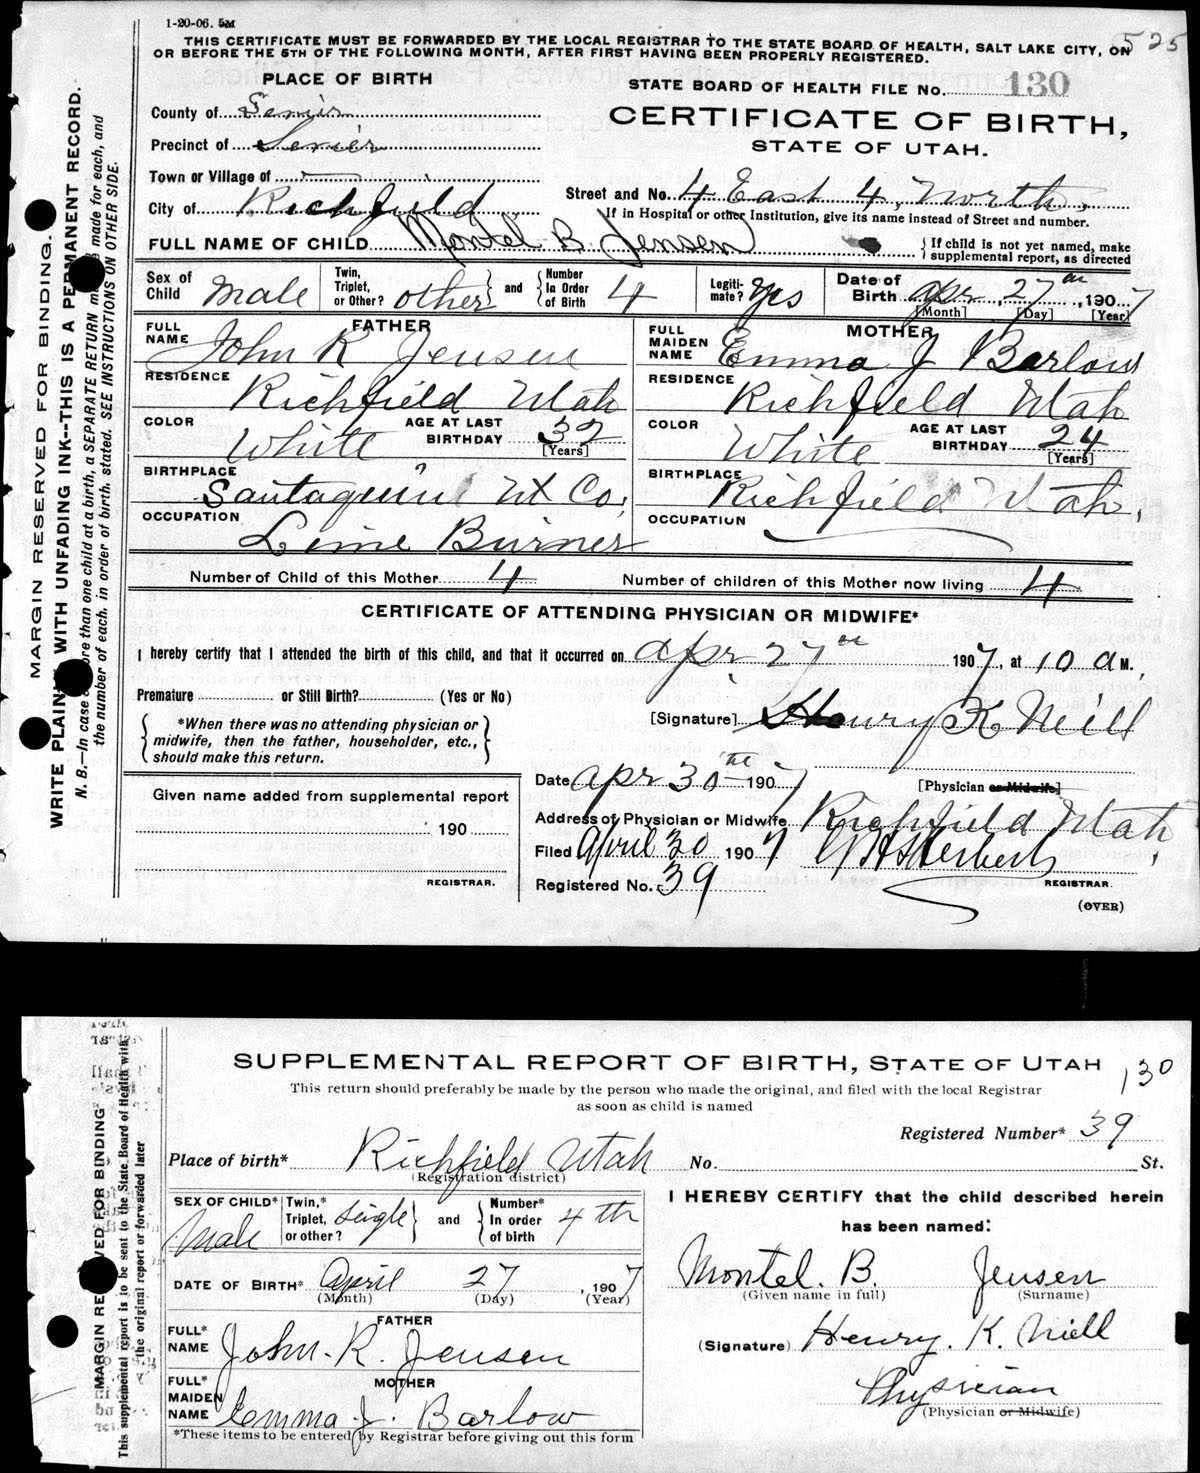 1-20-06. 5M
525
THIS CERTIFICATE MUST BE FORWARDED BY THE LOCAL REGISTRAR TO THE STATE BOARD OF HEALTH, SALT LAKE CITY, ON
OR BEFORE THE 5TH OF THE FOLLOWING MONTH, AFTER FIRST HAVING BEEN PROPERLY REGISTERED.
PLACE OF BIRTH
STATE BOARD OF HEALTH FILE No. 130
County of Sevier
CERTIFICATE OF BIRTH,
Precinct of Sevier
STATE OF UTAH.
Town or Village of
Street and No. 4 East 4, North,
City of Richfield
If in Hospital or other Institution, give its name instead of Street and number.
FULL NAME OF CHILD Montel B. Jensen { If child is not yet named, make supplemental report, as directed
Sex of Child Male Twin, Triplet, or Other? other } and { Number In Order of Birth 4 Legitimate? Yes Date of Birth Apr, 27th, 1907
[Month] [Day] [Year]
FATHER
FULL NAME John R Jensen
RESIDENCE Richfield Utah
COLOR White AGE AT LAST BIRTHDAY 32 [Years]
BIRTHPLACE Santaquin Ut Co.
OCCUPATION Lime Burner
MOTHER
FULL MAIDEN NAME Emma J Barlow
RESIDENCE Richfield Utah
COLOR White AGE AT LAST BIRTHDAY 24 [Years]
BIRTHPLACE Richfield Utah.
OCCUPATION
Number of Child of this Mother 4 Number of children of this Mother now living 4
CERTIFICATE OF ATTENDING PHYSICIAN OR MIDWIFE*
I hereby certify that I attended the birth of this child, and that it occurred on Apr 27th 1907, at 10 A M.
Premature or Still Birth? (Yes or No)
[Signature] Henry K Neill
{ *When there was no attending physician or midwife, then the father, householder, etc., should make this return. }
[Physician or Midwife]
Date Apr 30th 1907
Given name added from supplemental report
190
REGISTRAR.
Address of Physician or Midwife Richfield Utah
Filed April 30 1907
REGISTRAR.
Registered No. 39
(OVER)
MARGIN RESERVED FOR BINDING.
WRITE PLAINLY WITH UNFADING INK--THIS IS A PERMANENT RECORD.
N. B.—In case of more than one child at a birth, a SEPARATE RETURN must be made for each, and
the number of each, in order of birth, stated. SEE INSTRUCTIONS ON OTHER SIDE.
SUPPLEMENTAL REPORT OF BIRTH, STATE OF UTAH 130
This return should preferably be made by the person who made the original, and filed with the local Registrar
as soon as child is named
Registered Number* 39
Place of birth* Richfield Utah No. St.
(Registration district)
SEX OF CHILD* Male Twin,* Triplet, or other? Single } and { Number* In order of birth 4th
DATE OF BIRTH* April 27, 1907
(Month) (Day) (Year)
FATHER
FULL* NAME John. R. Jensen
MOTHER
FULL* MAIDEN NAME Emma J. Barlow
*These items to be entered by Registrar before giving out this form
I HEREBY CERTIFY that the child described herein
has been named:
Montel. B. Jensen
(Given name in full) (Surname)
(Signature) Henry. K. Niell
Physician
(Physician or Midwife)
MARGIN RESERVED FOR BINDING
This supplemental report is to be sent to the State Board of Health with
the original report or forwarded later